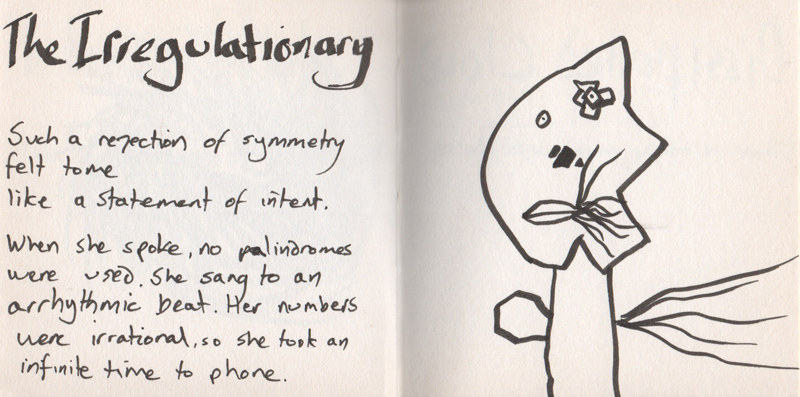 The Irregulationary
Such a rejection of symmetry
felt to me
like a statement of intent.
When she spoke, no palindromes
were used. She sang to an
arrhythmic beat. Her numbers
were irrational, so she took an
infinite time to phone.